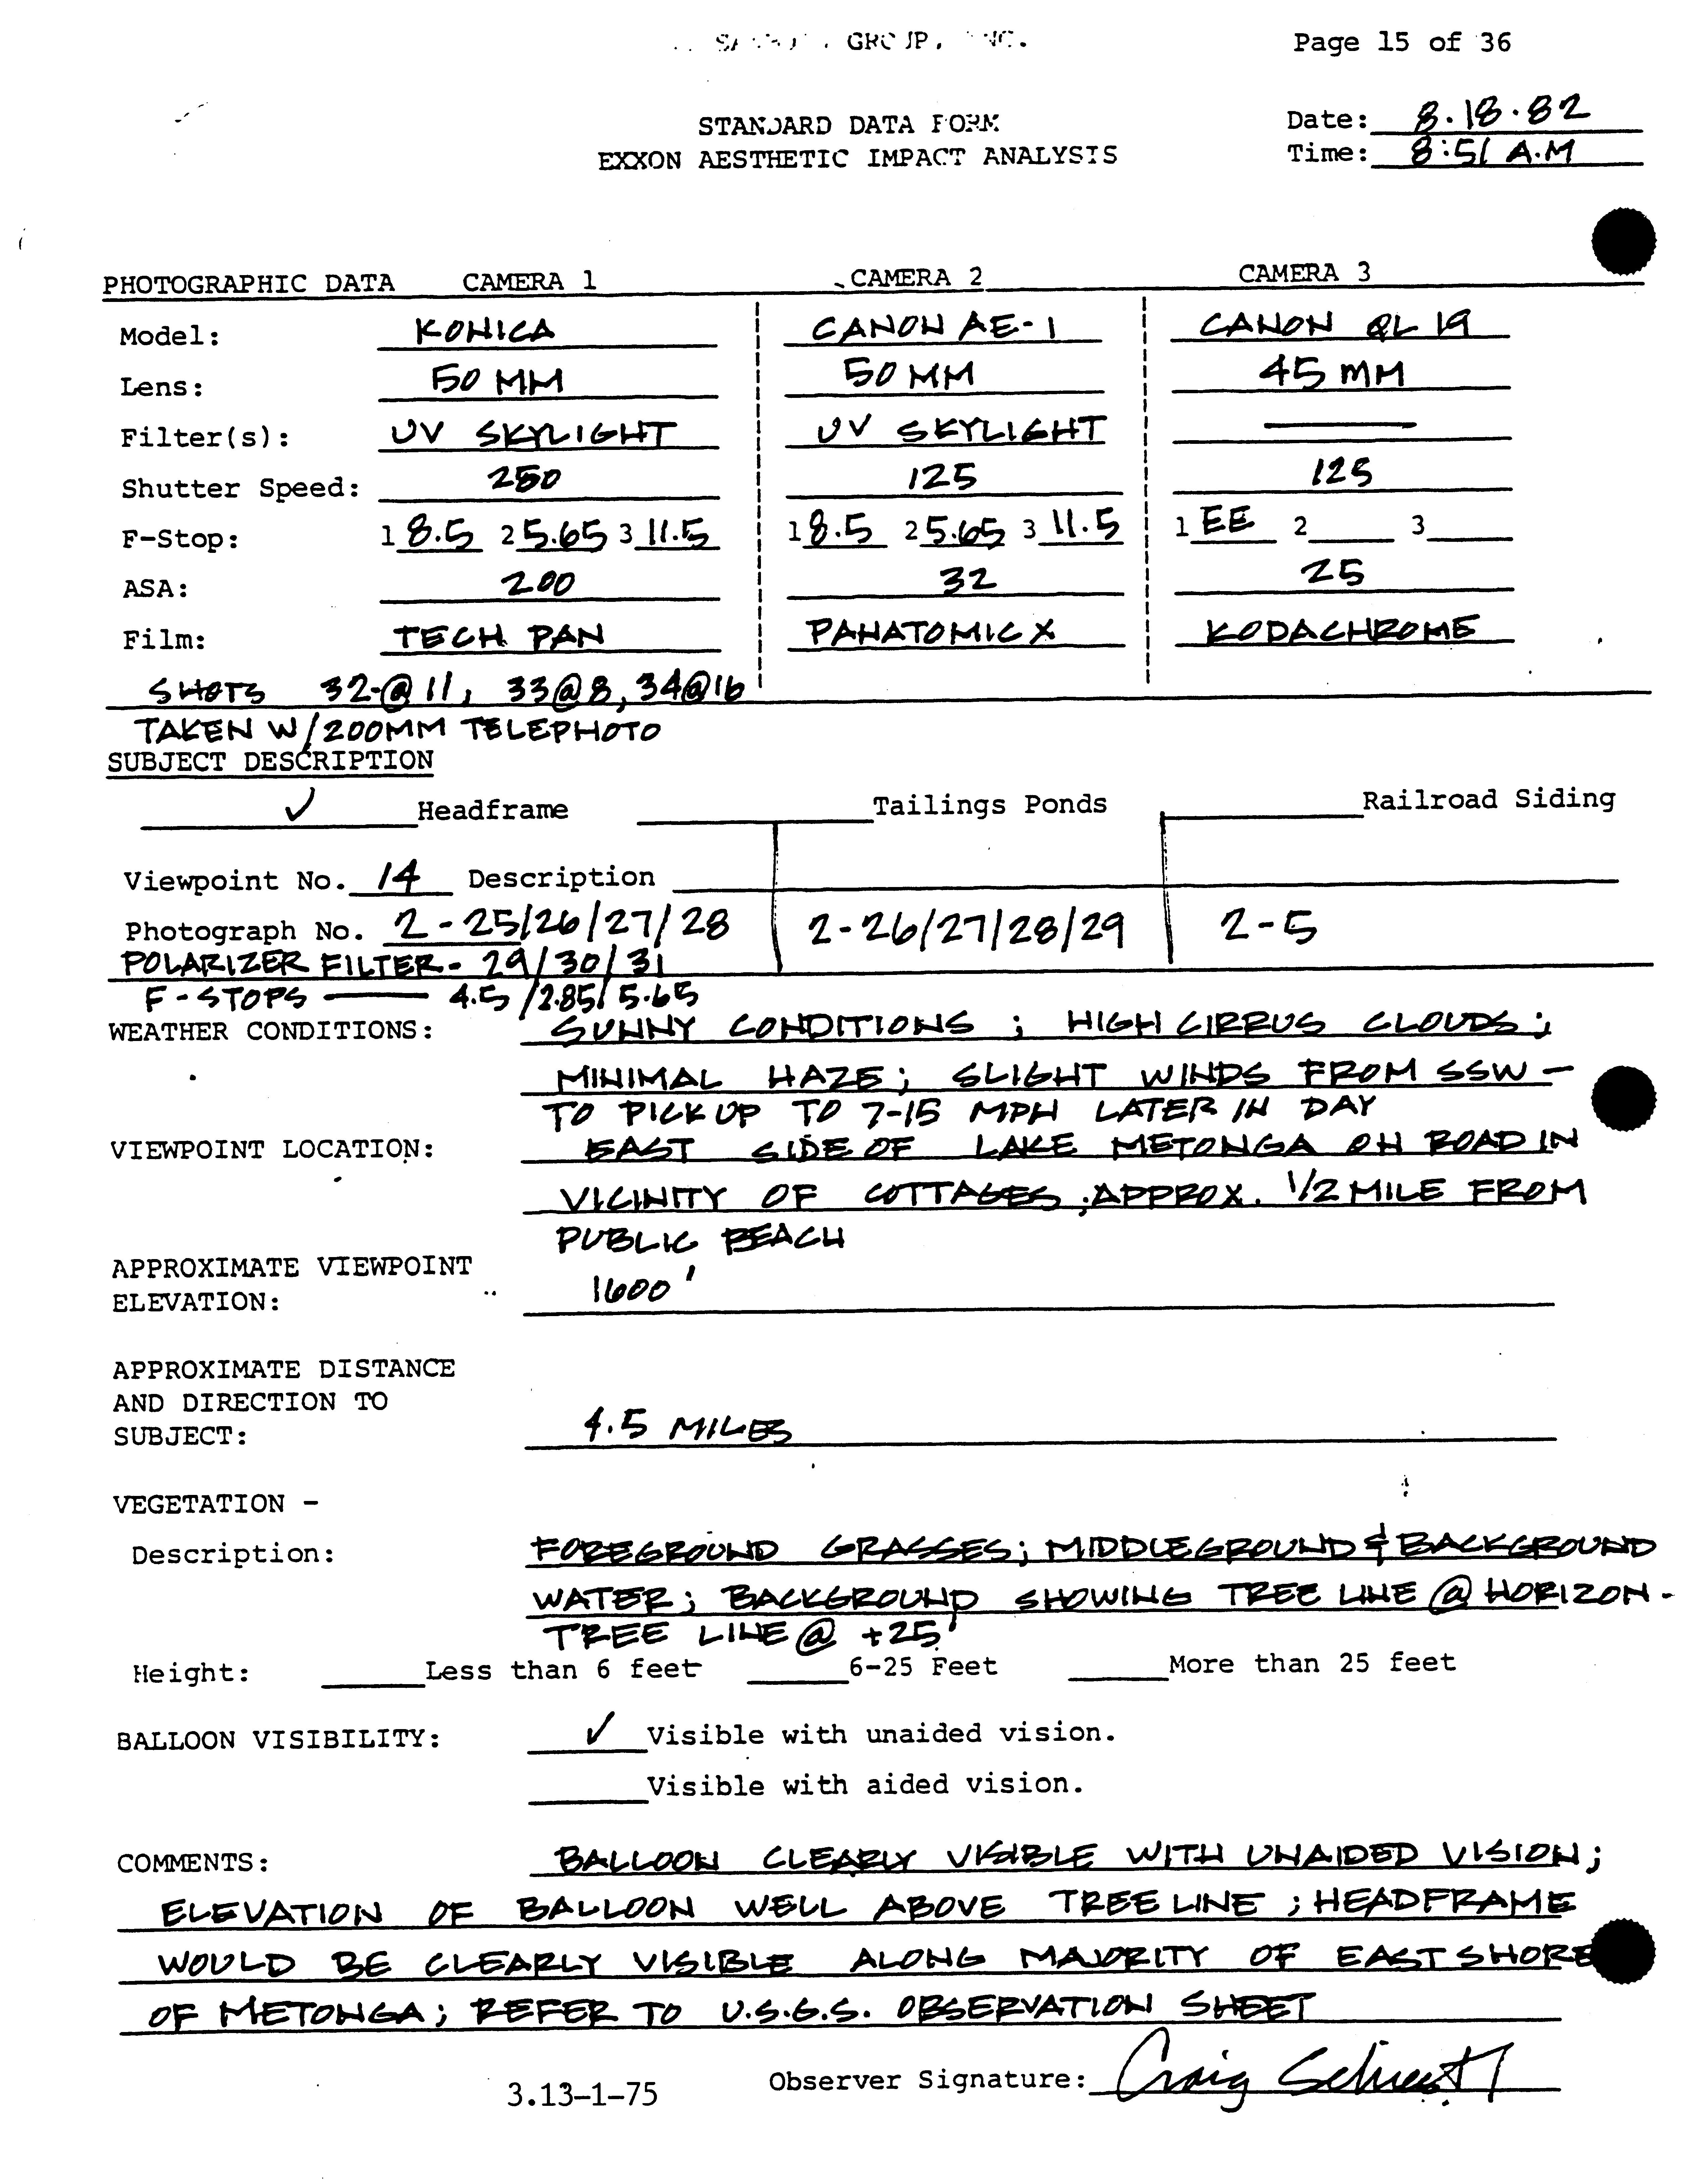 GROUP, INC.
Page 15 of 36
STANDARD DATA FORM
EXXON AESTHETIC IMPACT ANALYSIS
Date: 8.18.82
Time: 8:51 A.M
PHOTOGRAPHIC DATA CAMERA 1 CAMERA 2 CAMERA 3
Model: KONICA CANON AE-1 CANON QL 19
Lens: 50 MM 50 MM 45 MM
Filter(s): UV SKYLIGHT UV SKYLIGHT ———
Shutter Speed: 250 125 125
F-Stop: 1 8.5 2 5.65 3 11.5 1 8.5 2 5.65 3 11.5 1 EE 2 3
ASA: 200 32 25
Film: TECH PAN PANATOMIC X KODACHROME
SHOTS 32-@11, 33@8, 34@16
TAKEN W/200MM TELEPHOTO
SUBJECT DESCRIPTION
✓ Headframe Tailings Ponds Railroad Siding
Viewpoint No. 14 Description
Photograph No. 2-25/26/27/28 2-26/27/28/29 2-5
POLARIZER FILTER- 29/30/31
F-STOPS —— 4.5/2.85/5.65
WEATHER CONDITIONS: SUNNY CONDITIONS; HIGH CIRRUS CLOUDS;
MINIMAL HAZE; SLIGHT WINDS FROM SSW —
TO PICK UP TO 7-15 MPH LATER IN DAY
VIEWPOINT LOCATION: EAST SIDE OF LAKE METONGA ON ROAD IN
VICINITY OF COTTAGES; APPROX. 1/2 MILE FROM
PUBLIC BEACH
APPROXIMATE VIEWPOINT
ELEVATION: 1600'
APPROXIMATE DISTANCE
AND DIRECTION TO
SUBJECT: 4.5 MILES
VEGETATION -
Description: FOREGROUND GRASSES; MIDDLEGROUND & BACKGROUND
WATER; BACKGROUND SHOWING TREE LINE @ HORIZON-
TREE LINE @ +25'
Height: Less than 6 feet 6-25 Feet More than 25 feet
BALLOON VISIBILITY: ✓ Visible with unaided vision.
Visible with aided vision.
COMMENTS: BALLOON CLEARLY VISIBLE WITH UNAIDED VISION;
ELEVATION OF BALLOON WELL ABOVE TREE LINE; HEADFRAME
WOULD BE CLEARLY VISIBLE ALONG MAJORITY OF EAST SHORE
OF METONGA; REFER TO U.S.G.S. OBSERVATION SHEET
3.13-1-75
Observer Signature: Craig